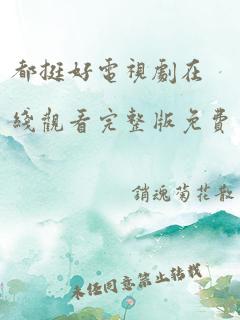 都挺好電視劇在
綫觀看完整版免費
銷魂菊花散
未經同意禁止轉載